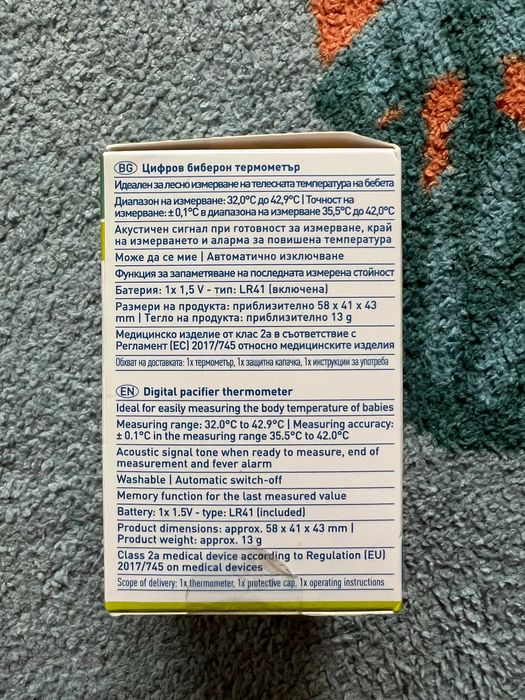 BG Цифров биберон термометър
Идеален за лесно измерване на телесната температура на бебета
Диапазон на измерване: 32,0°C до 42,9°C | Точност на
измерване: ± 0,1°C в диапазона на измерване 35,5°C до 42,0°C
Акустичен сигнал при готовност за измерване, край
на измерването и аларма за повишена температура
Може да се мие | Автоматично изключване
Функция за запаметяване на последната измерена стойност
Батерия: 1x 1,5 V - тип: LR41 (включена)
Размери на продукта: приблизително 58 x 41 x 43
mm | Тегло на продукта: приблизително 13 g
Медицинско изделие от клас 2а в съответствие с
Регламент (ЕС) 2017/745 относно медицинските изделия
Обхват на доставката: 1x термометър, 1x защитна капачка, 1x инструкции за употреба
EN Digital pacifier thermometer
Ideal for easily measuring the body temperature of babies
Measuring range: 32.0°C to 42.9°C | Measuring accuracy:
± 0.1°C in the measuring range 35.5°C to 42.0°C
Acoustic signal tone when ready to measure, end of
measurement and fever alarm
Washable | Automatic switch-off
Memory function for the last measured value
Battery: 1x 1.5V - type: LR41 (included)
Product dimensions: approx. 58 x 41 x 43 mm |
Product weight: approx. 13 g
Class 2a medical device according to Regulation (EU)
2017/745 on medical devices
Scope of delivery: 1x thermometer, 1x protective cap, 1x operating instructions